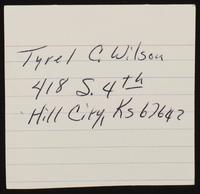 Tyrel C. Wilson
418 S. 4th
Hill City, Ks 67642